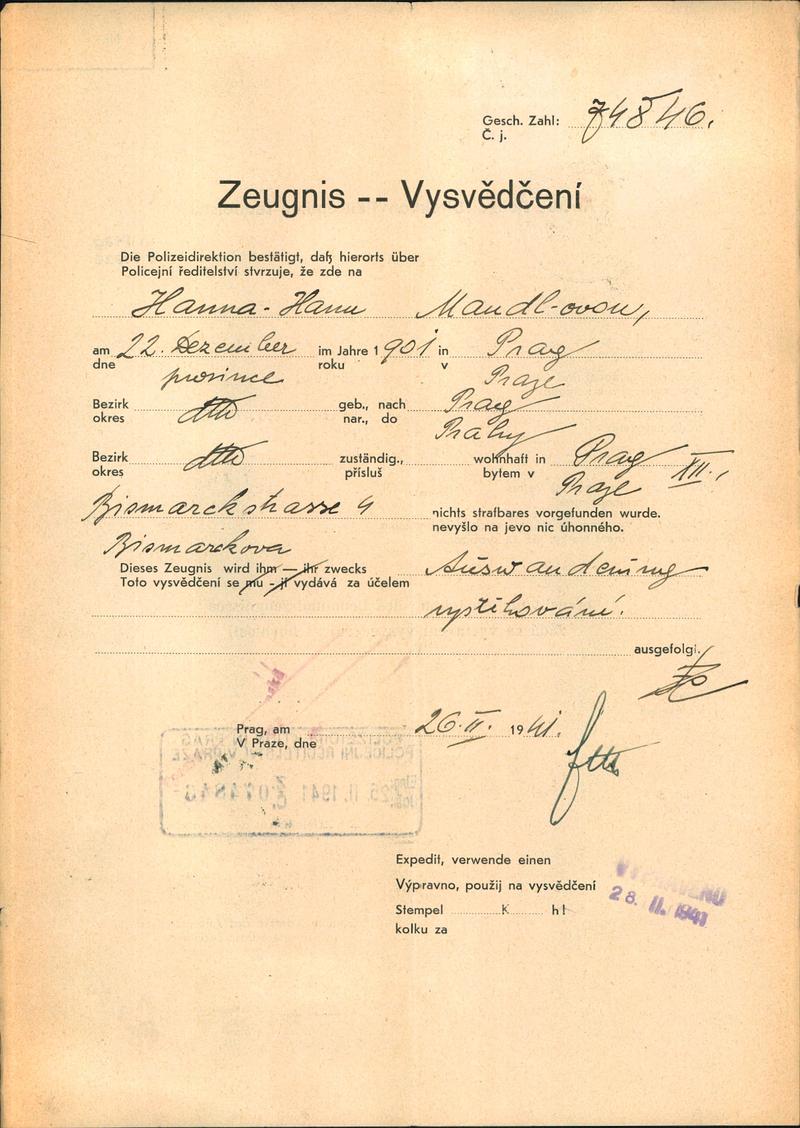 Gesch. Zahl: 74846.
Č. j.
Zeugnis -- Vysvědčení
Die Polizeidirektion bestätigt, daß hierorts über
Policejní ředitelství stvrzuje, že zde na
Hanna-Hanu Mandl-ovou,
am 22. Dezember im Jahre 1901 in Prag
dne prosince roku v Praze
Bezirk dtto geb., nach Prag
okres nar., do Prahy
Bezirk dtto zuständig., wohnhaft in Prag XII.,
okres přísluš bytem v Praze
Bismarckstrasse 4 nichts strafbares vorgefunden wurde.
nevyšlo na jevo nic úhonného.
Bismarckova
Dieses Zeugnis wird ihm — ihr zwecks Auswanderung
Toto vysvědčení se mu - jí vydává za účelem
vystěhování.
ausgefolgt.
Prag, am 26. II. 1941.
V Praze, dne
POLICEJNÍ ŘEDITELSTVÍ V PRAZE
25. II. 1941 Č. 074846
Expedit, verwende einen
Výpravno, použij na vysvědčení
Stempel K hl
kolku za
VYPRAVENO
28. II. 1941